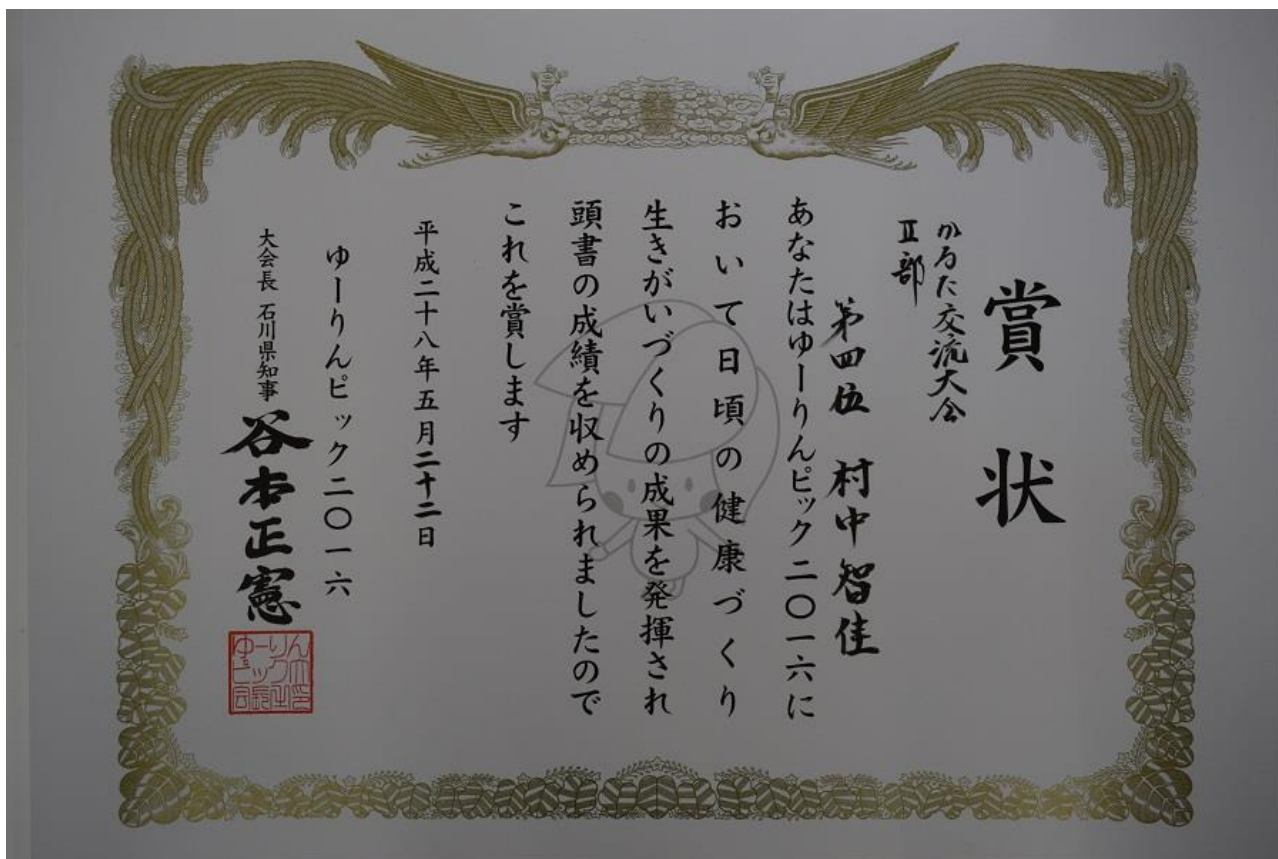 賞状
かるた交流大会
Ⅱ部
第四位 村中智佳
あなたはゆーりんピック二〇一六に
おいて日頃の健康づくり
生きがいづくりの成果を発揮され
頭書の成績を収められましたので
これを賞します
平成二十八年五月二十二日
ゆーりんピック二〇一六
大会長 石川県知事 谷本正憲